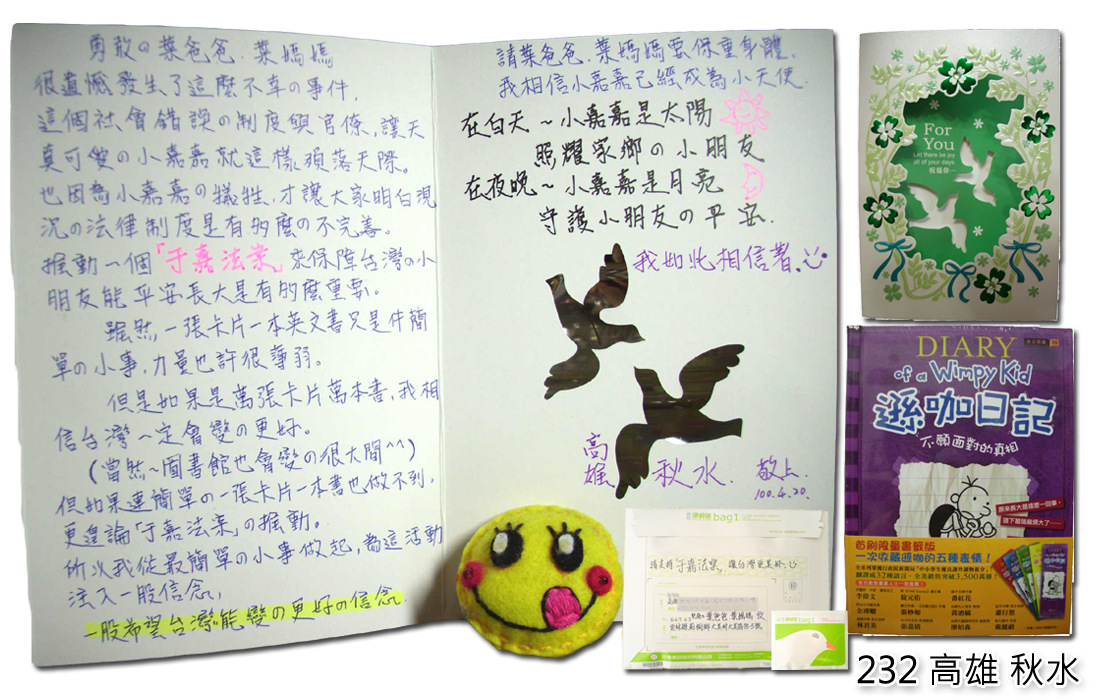 勇敢の葉爸爸、葉媽媽
很遺憾發生了這麼不幸の事件,
這個社會錯誤の制度與官僚,讓天
真可愛の小嘉嘉就這樣殞落天際。
也因為小嘉嘉の犧牲,才讓大家明白現
況の法律制度是有多麼の不完善。
推動一個「于嘉法案」來保障台灣の小
朋友能平安長大是有多麼重要。
雖然,一張卡片一本英文書只是件簡
單の小事,力量也許很薄弱。
但是如果是萬張卡片萬本書,我相
信台灣一定會變の更好。
(當然~圖書館也會變の很大間^^)
但如果連簡單の一張卡片一本書也做不到,
更遑論「于嘉法案」の推動。
所以我從最簡單の小事做起,為這活動
注入一股信念,
一股希望台灣能變の更好の信念.
請葉爸爸、葉媽媽要保重身體.
我相信小嘉嘉已經成為小天使.
在白天~小嘉嘉是太陽
照耀家鄉の小朋友
在夜晚~小嘉嘉是月亮
守護小朋友の平安.
我如此相信著.
高雄 秋水. 敬上.
100.4.20.
For
You
Let there be joy
all of your days.
祝福你
DIARY
of a Wimpy Kid
遜咖日記
不願面對的真相
原來長大是這麼一回事,
首刷限量書籤版
一次收藏遜咖的五種表情!
bag1
請支持「于嘉法案」,讓台灣更美好
葉爸爸 葉媽媽 收
bag1
232 高雄 秋水